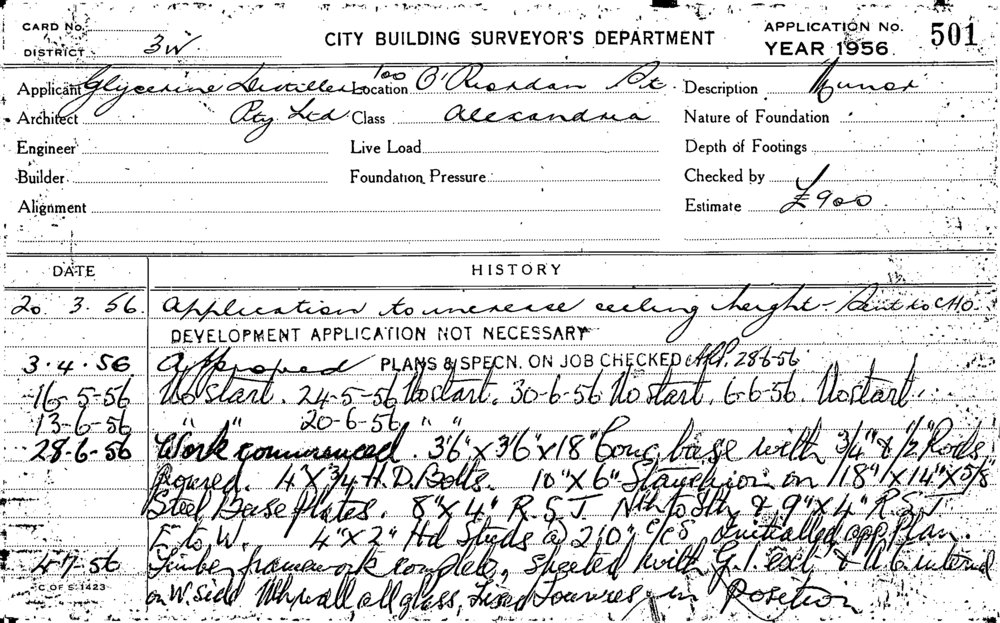 CARD No.
DISTRICT 3W
CITY BUILDING SURVEYOR'S DEPARTMENT
APPLICATION No. 501
YEAR 1956
Applicant Glycerine Distillers Location 100 O'Riordan St. Description Minor
Architect Pty Ltd Class Alexandria Nature of Foundation
Engineer Live Load Depth of Footings
Builder Foundation Pressure Checked by
Alignment Estimate £900
DATE HISTORY
20. 3. 56. Application to increase ceiling height - Sent to C.H.O.
DEVELOPMENT APPLICATION NOT NECESSARY
3. 4. 56 Approved PLANS & SPECN. ON JOB CHECKED 28-6-56
16-5-56 No Start. 24-5-56 No start. 30-6-56 No Start. 6-6-56. No start.
13-6-56 " " 20-6-56 " "
28-6-56 Work commenced. 3'6" X 3'6" X 18" Conc base with 3/4" & 1/2" Rods
poured. 4 X 3/4 H.D. Bolts. 10" X 6" Stanchion on 18" X 14" X 5/8"
Steel Base Plates. 8" X 4" R.S.J. Nth to Sth & 9" X 4" R.S.J.
E to W. 4" X 2" Hd Studs @ 2'0" c/cs initialled app. Plan.
4-7-56 Timber framework complete, sheeted with G.I. ext. & internal
C OF S 1423
on W. side Nth wall all glass, Fixed Louvres in Position